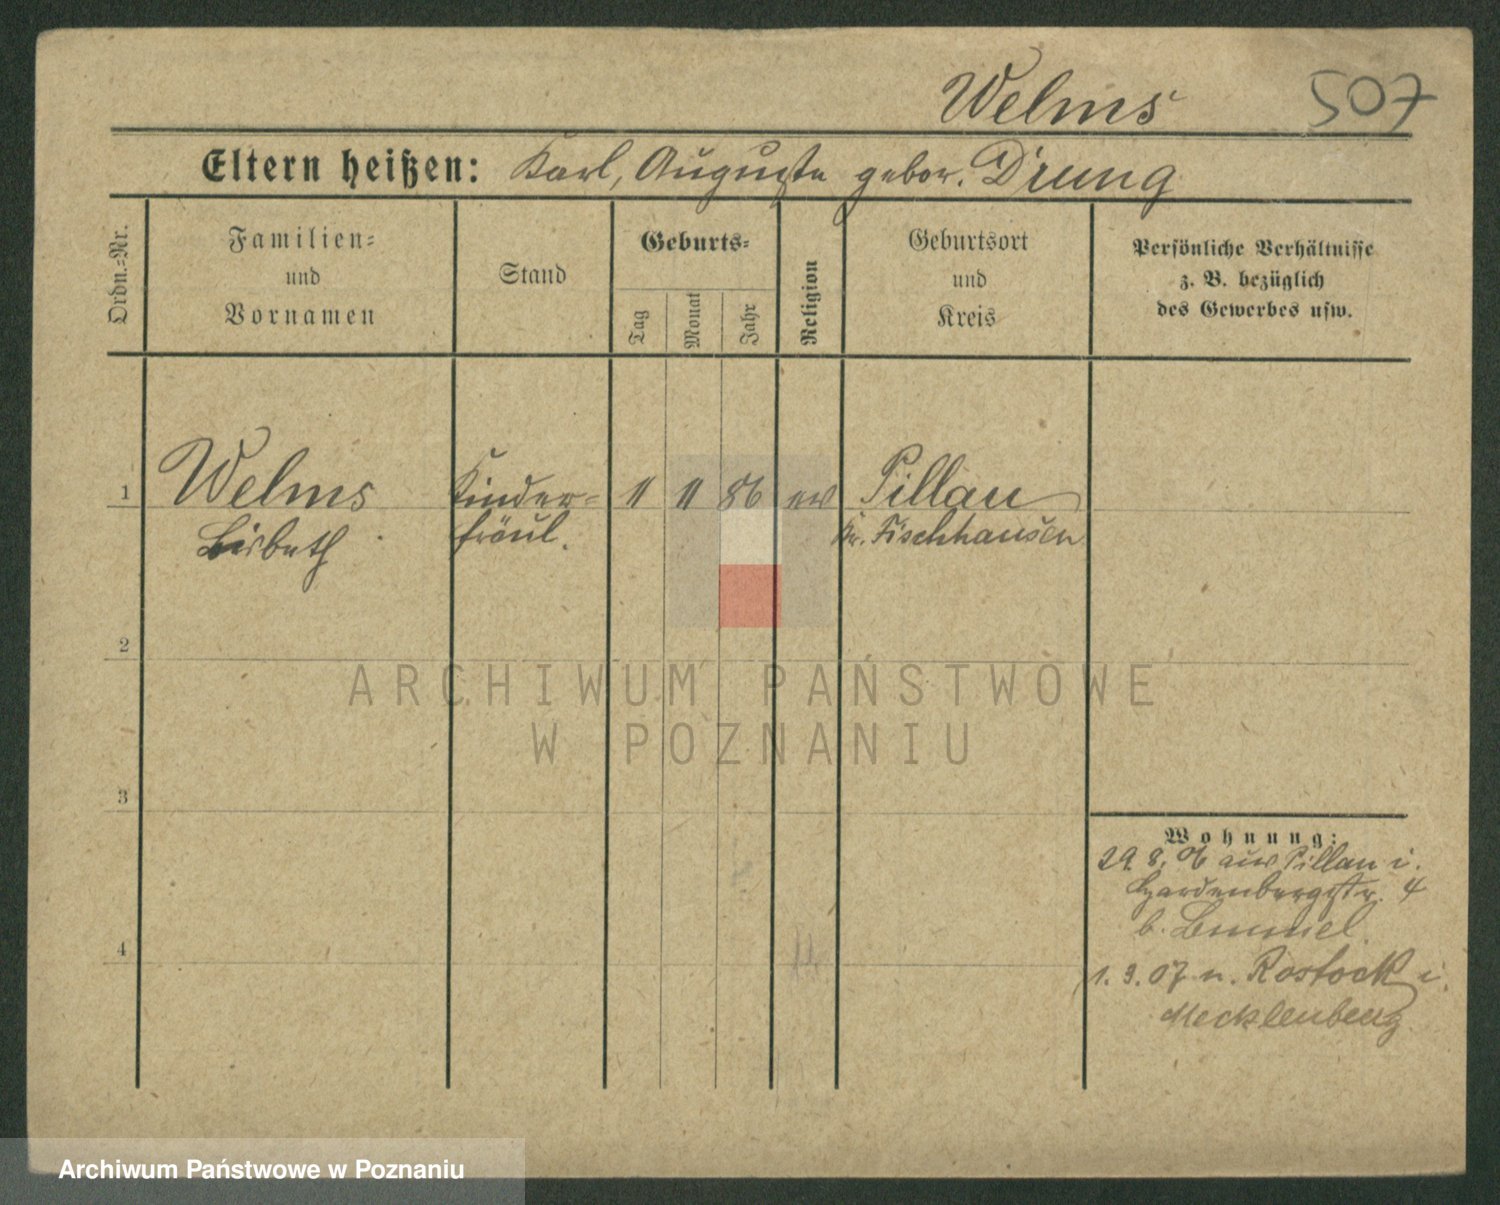 Welms 507
Eltern heißen: Karl, Auguste gebor. Drung
Ordn.-Nr.
Familien-
und
Vornamen
Stand
Geburts-
Tag
Monat
Jahr
Religion
Geburtsort
und
Kreis
Persönliche Verhältnisse
z. B. bezüglich
des Gewerbes usw.
1 Welms Kinder- 11 11 86 ev Pillau
Lisbeth fräul. Kr. Fischhausen
2
3
4
Wohnung:
29. 8. 06 aus Pillau i.
Hardenbergstr. 4
b.
1. 9. 07 n. Rostock i.
Mecklenberg
ARCHIWUM PAŃSTWOWE
W POZNANIU
Archiwum Państwowe w Poznaniu